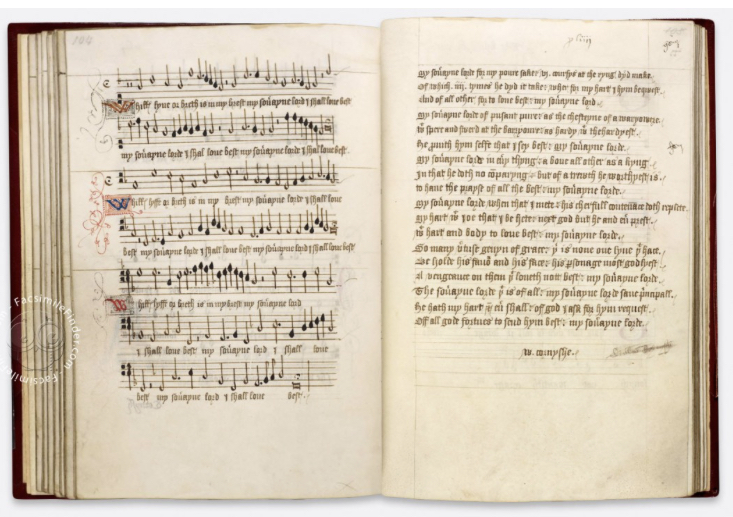 144
Whilſt lyve or breth is in my breſt my ſoũayne lord I ſhall love beſt
my ſoũayne lorde I ſhal love beſt my ſoũayne lorde I ſhall love beſt.
Whilſt lyfe or breth is in my breſt my ſoũayne lorde I ſhall love
beſt my ſoũayne lorde I ſhall love beſt my ſoũayne lord I ſhall love beſt
Whilſt lyffe or breth is in my breſt my ſoũayne lord
I ſhall love beſt my ſoũayne lord I ſhall love
beſt my ſoũayne lord I ſhall love beſt.
My ſoũayne lorde for my poure ſake: vj. courſys at the ryng dyd make.
Of which iiij. tymes he dyd it take: wher for my hart I hym bequeſt.
And of all other for to love beſt: my ſoũayne lord.
My ſoũayne lorde of puſant pure: as the cheſteyne of a waryowere.
w̃ spere and ſwerd at the barryoure: as hardy w̃ the hardyeſt.
He puith hym ſelfe that I ſey beſt: my ſoũayne lorde.
My ſoũayne lorde in eũy thyng: a bove all other as a kyng.
In that he doth no cõparyng: but of a trewth he worthyeſt is.
to have the prayſe of all the beſt: my ſoũayne lorde.
My ſoũayne lorde when that I mete: his cherfull contenãce doth replete.
My hart w̃ Joe that I be hete: next god but he and eũ preſt.
w̃ hart and body to love beſt: my ſoũayne lorde.
So many ṽtuſe gevyn of grace: þ̃ is none one lyve þ̃ hace.
Be holde his favõ and his face: his p̃ſonage moſt godlyeſt.
A vengeance on them þ̃ loveth not beſt: my ſoũayne lorde.
The ſoũayne lorde þ̃ is of all: my ſoũayne lorde save p̃ncypall.
He hath my hart & eũ ſhall: of god I aſk for hym requeſt.
Off all gode fortues to ſend hym beſt: my ſoũayne lorde.
W. cornyſhe.
Facsimilefinder.com